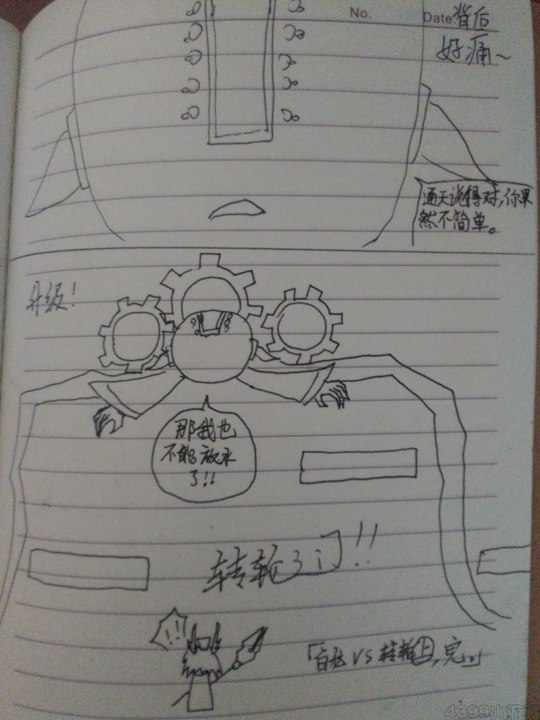 No.
Date
背后
好痛~
通天说得对,你果
然不简单。
升级!
那我也
不能放水
了!!
转轮之门!!
!!
「白起VS转轮上,完。」